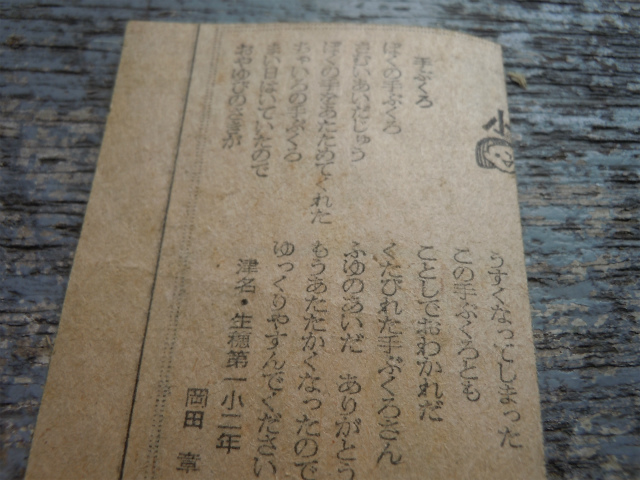 小
手ぶくろ
ぼくの手ぶくろ
さむいあいだじゅう
ぼくの手をあたためてくれた
ちゃいろの手ぶくろ
まい日はいていたので
おやゆびのさきが
うすくなってしまった
この手ぶくろとも
ことしでおわかれだ
くたびれた手ぶくろさん
ふゆのあいだ ありがとう
もうあたたかくなったので
ゆっくりやすんでください
津名・生穂第一小二年
岡田 章